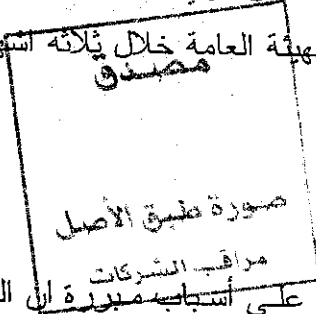 هيئة العامة خلال ثلاثة اشه
مصدق
صورة طبق الأصل
مراقب الشركات
على أسباب مبررة ان ال